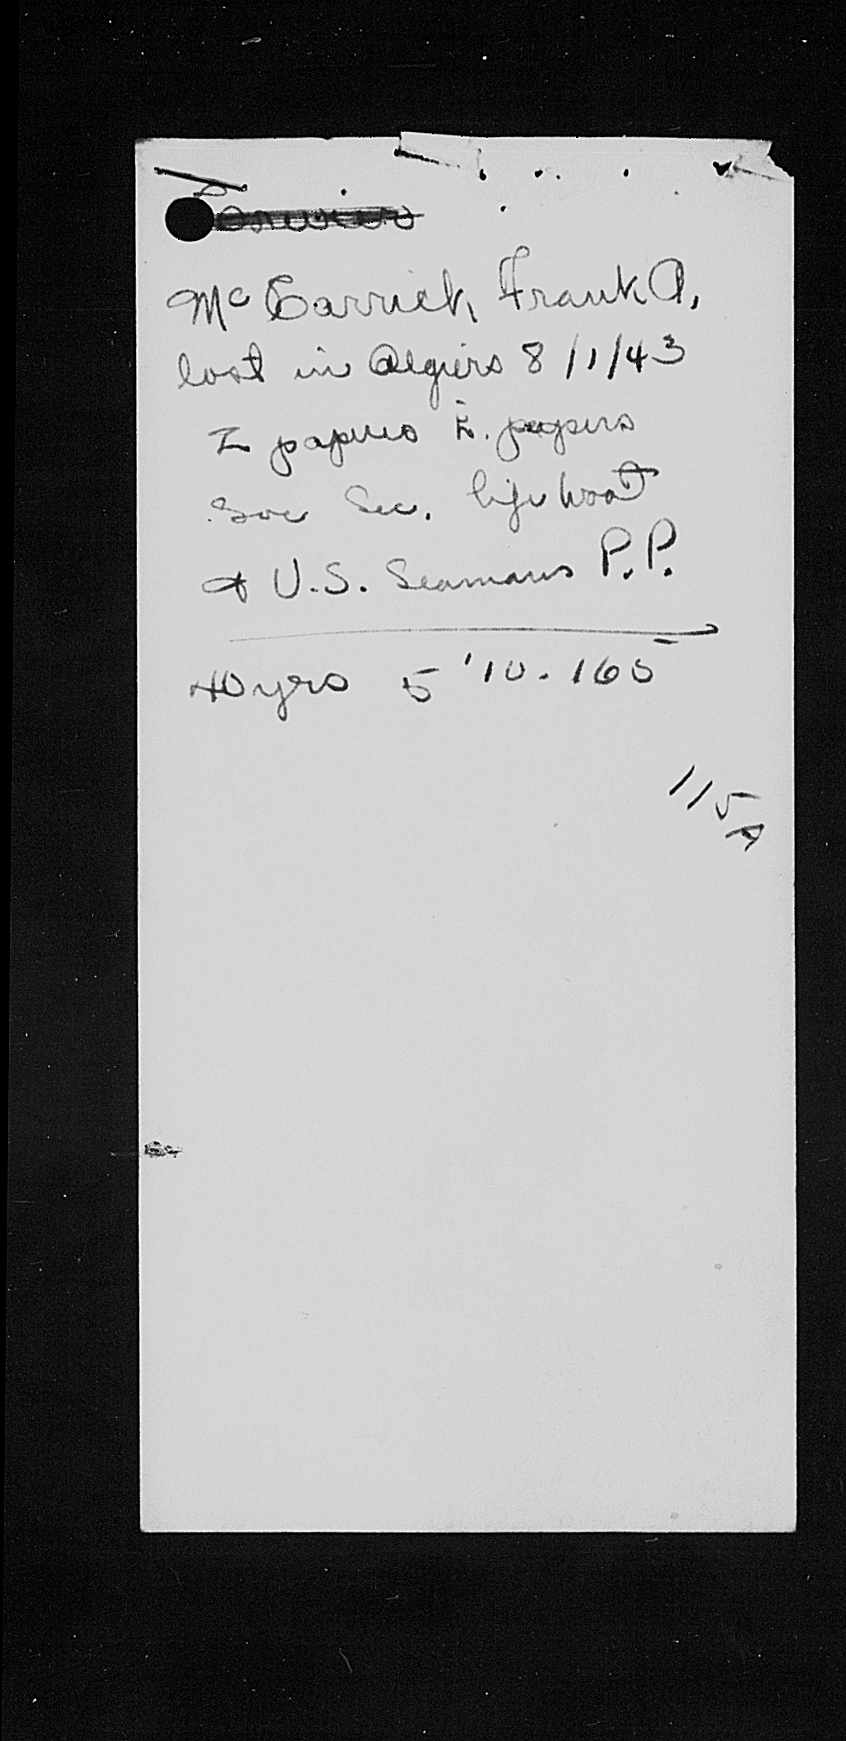 McCarrick, Frank A.
lost in Algiers 8/1/43
Z papers E. papers
Soc Sec. lifeboat
+ U.S. Seamans P.P.
40 yrs 5'10. 165
115A